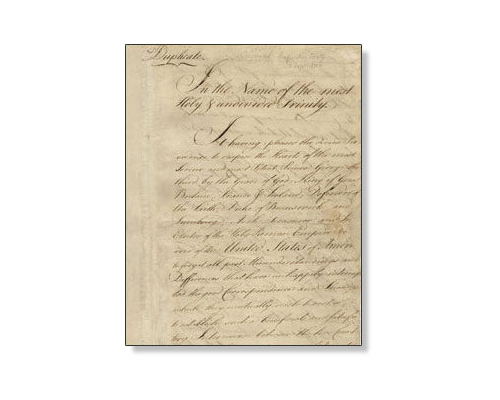 Duplicate.
In the Name of the most
Holy & undivided Trinity.
It having pleased the Divine Pro
vidence to dispose the Hearts of the most
Serene and most Potent Prince George the
third, by the Grace of God, King of Great
Britain, France & Ireland, Defender of
the Faith, Duke of Brunswick and
Lunebourg, Arch Treasurer and
Elector of the Holy Roman Empire
of the United States of America
to forget all past Misunderstandings and
Differences that have unhappily interrup
ted the good Correspondence and Friendship
which they mutually wish to
establish such a beneficial and satisfac
tory Intercourse between the two Count